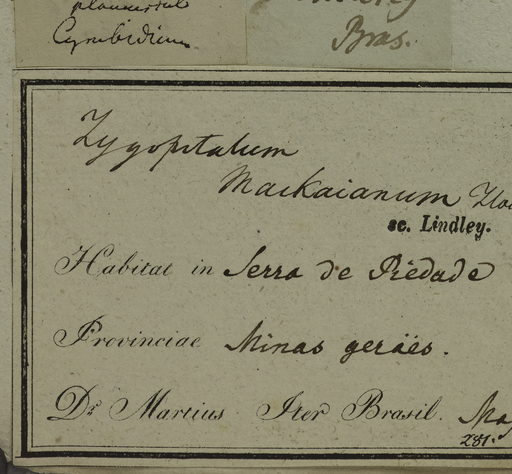 Cymbidium
Bras.
Zygopetalum
Mackaianum
sc. Lindley.
Habitat in Serra de Piedade
Provinciae Minas geraës.
Dr. Martius Iter Brasil.
281.